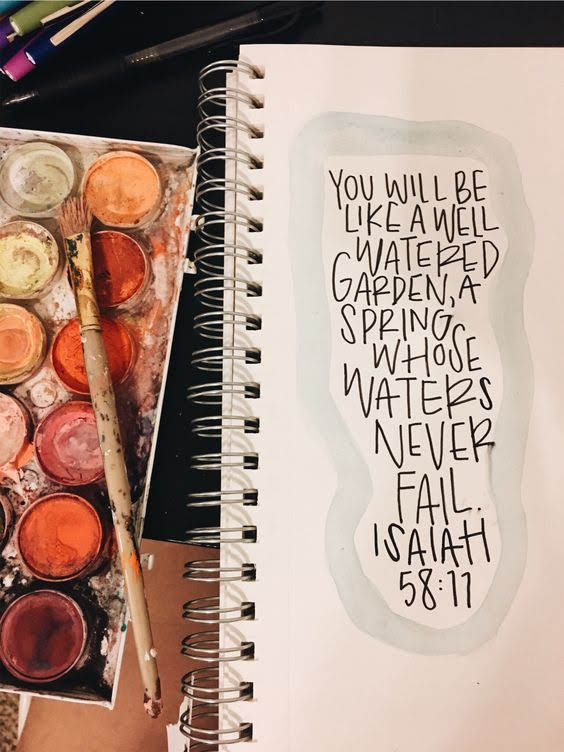 YOU WILL BE
LIKE A WELL
WATERED
GARDEN, A
SPRING
WHOSE
WATERS
NEVER
FAIL.
ISAIAH
58:11